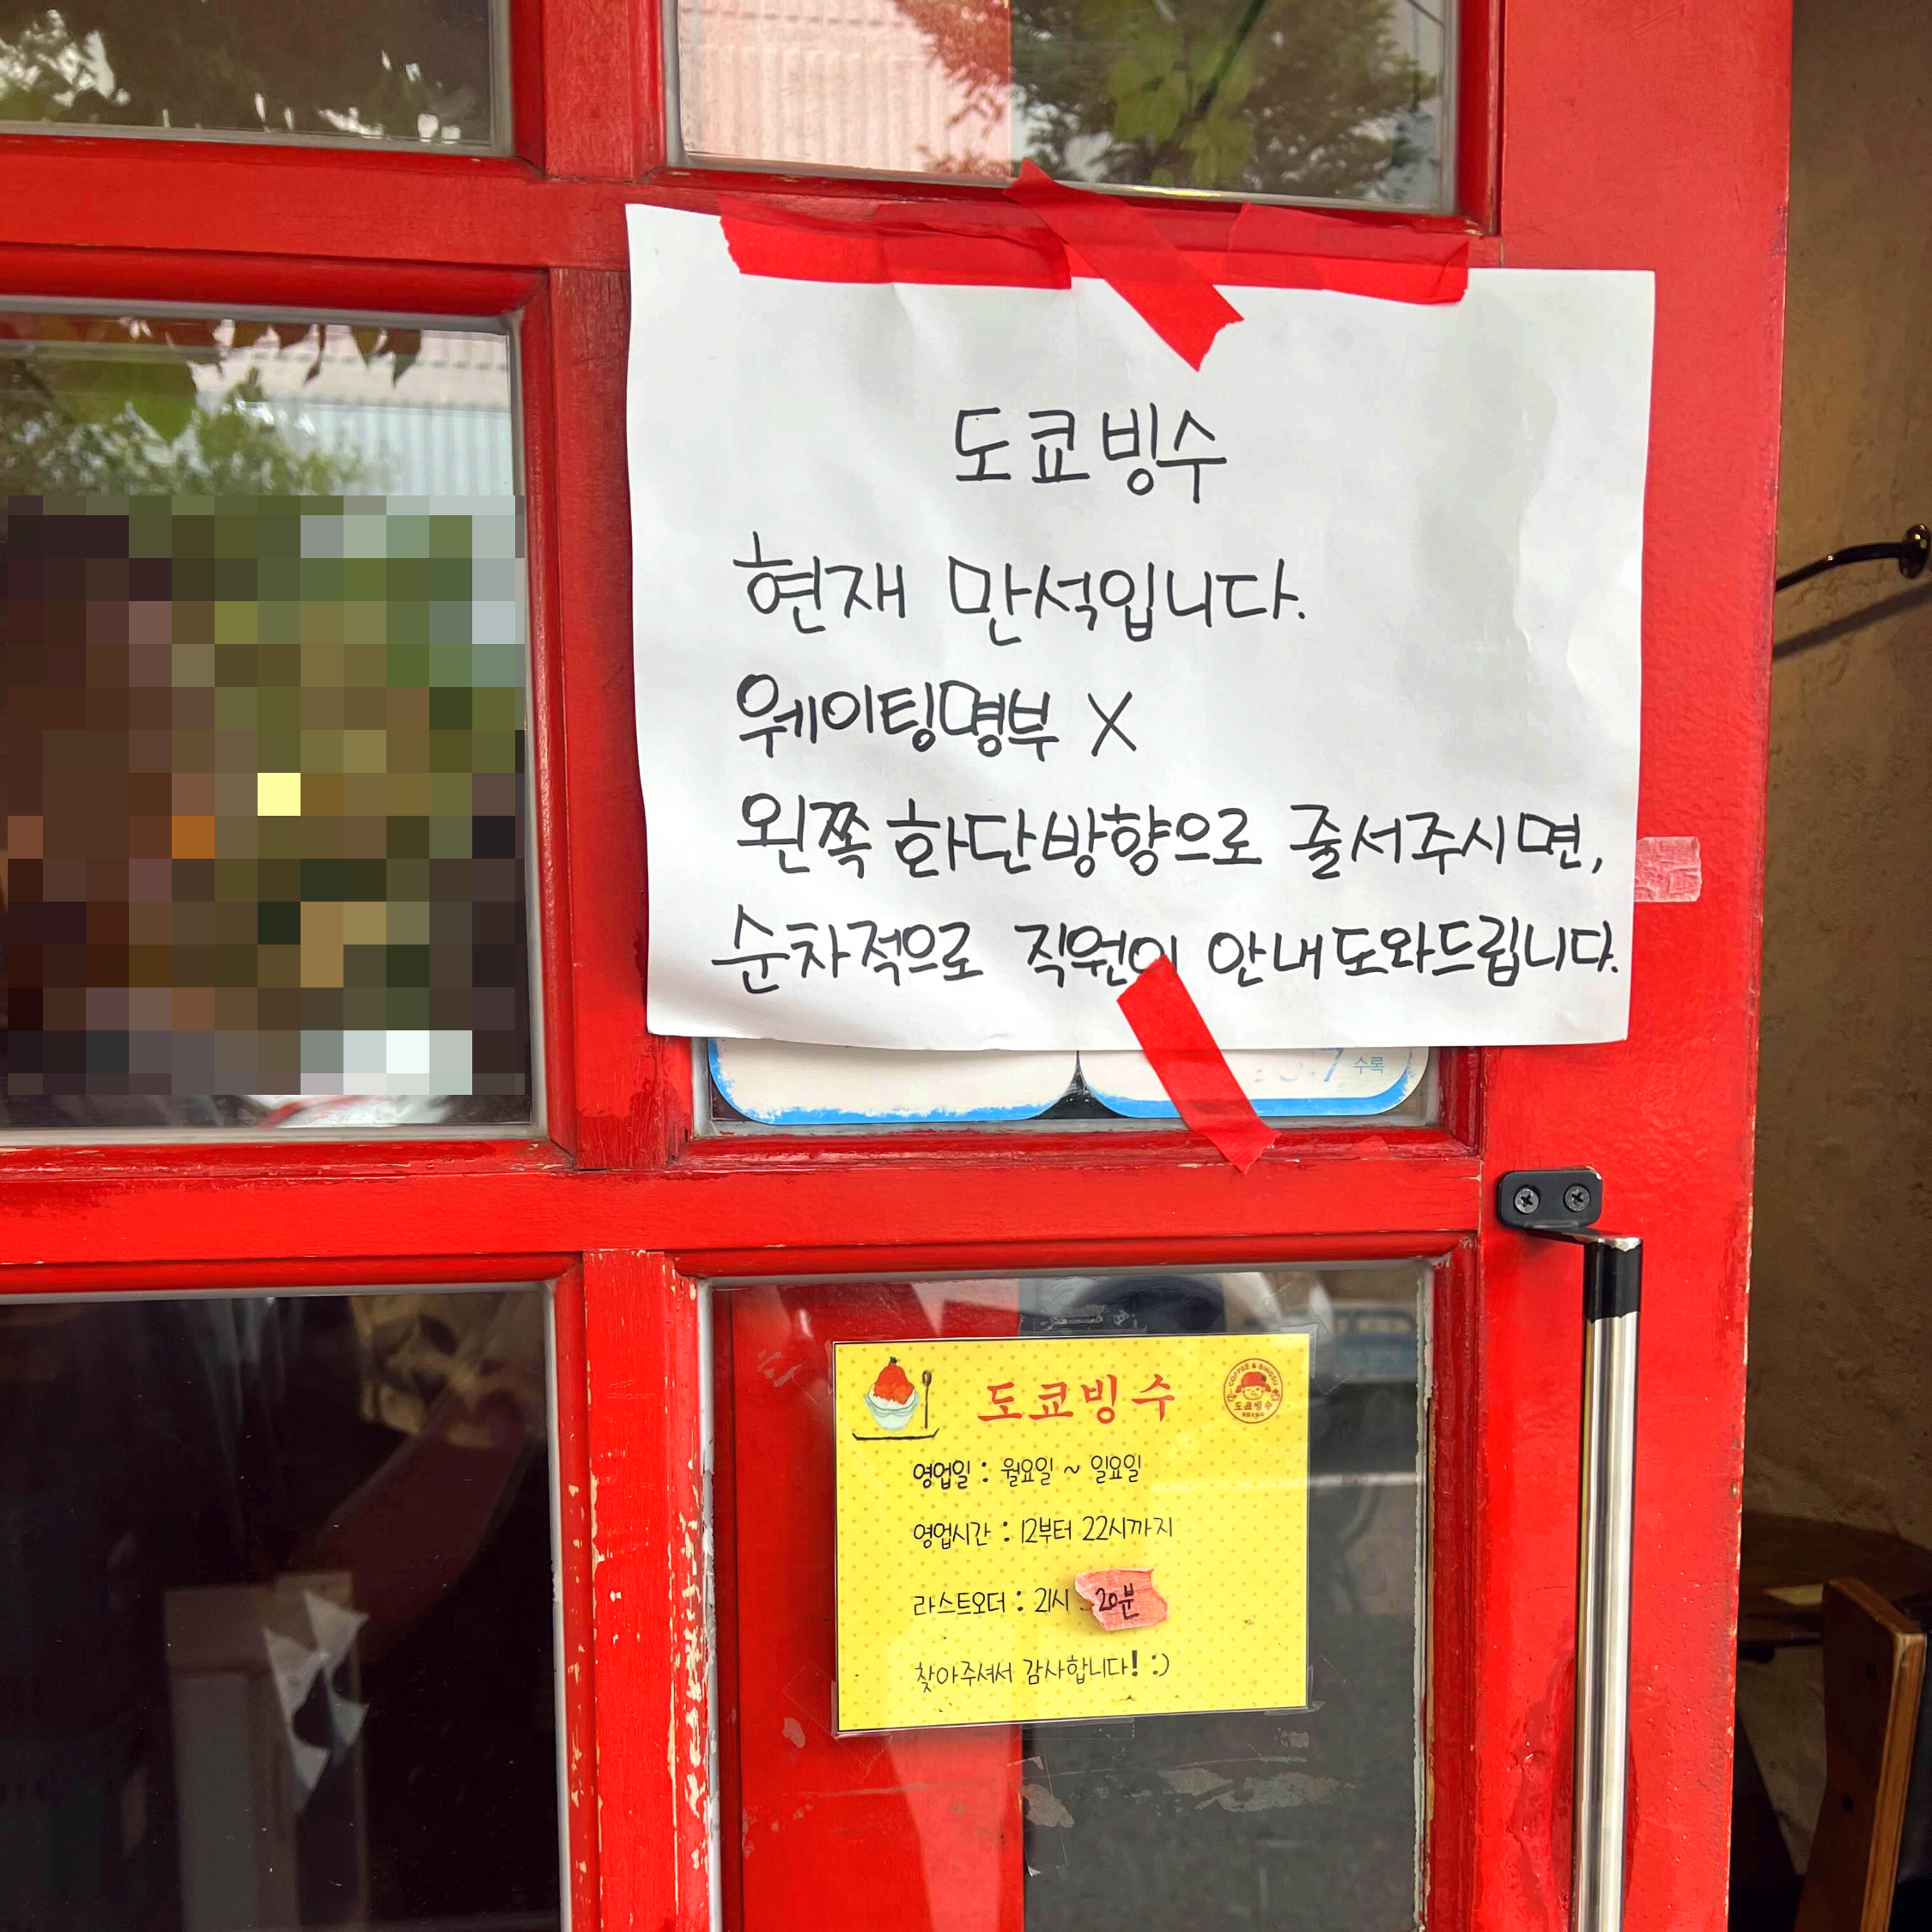 도쿄빙수
현재 만석입니다.
웨이팅명부 X
왼쪽 화단방향으로 줄서주시면,
순차적으로 직원이 안내도와드립니다.
수록
도쿄빙수
COFFEE & BINGSU
도쿄빙수
영업일 : 월요일 ~ 일요일
영업시간 : 12부터 22시까지
라스트오더 : 21시 20분
찾아주셔서 감사합니다! :)